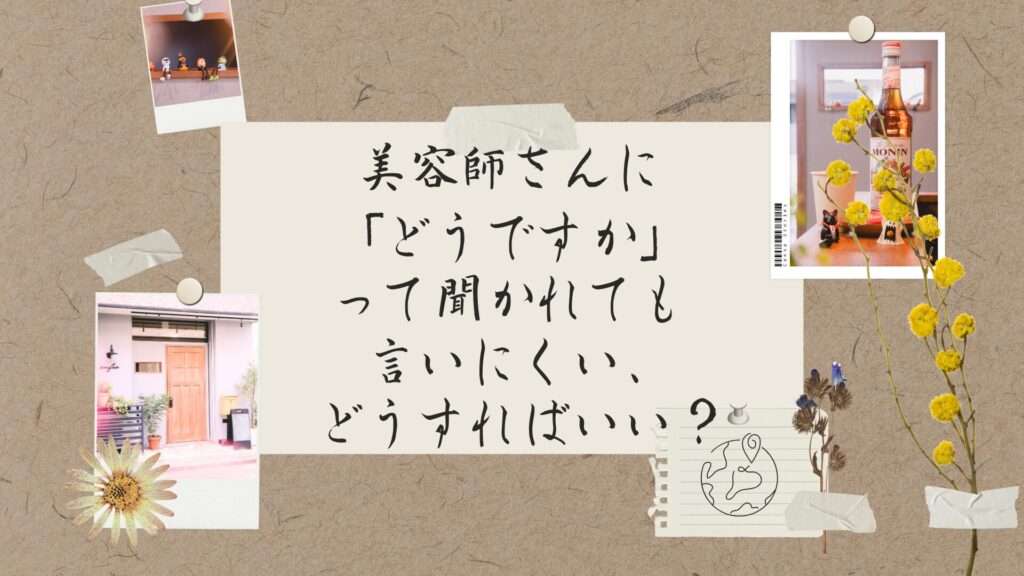 美容師さんに
「どうですか」
って聞かれても
言いにくい、
どうすればいい？
MONIN